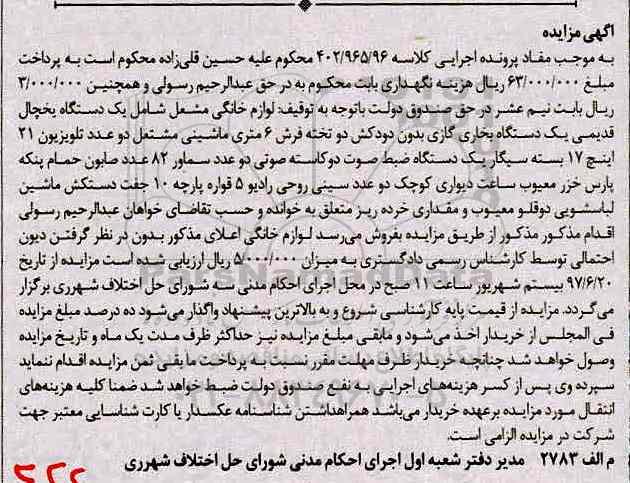 آگهی مزایده
به موجب مفاد پرونده اجرایی کلاسه ۴۰۲/۹۶۵/۹۶ محکوم علیه حسین قلی‌زاده محکوم است به پرداخت
مبلغ ۶۳/۰۰۰/۰۰۰ ریال هزینه نگهداری بابت محکوم به در حق عبدالرحیم رسولی و همچنین ۳/۰۰۰/۰۰۰
ریال بابت نیم عشر در حق صندوق دولت باتوجه به توقیف: لوازم خانگی مشعل شامل یک دستگاه یخچال
قدیمی یک دستگاه بخاری گازی بدون دودکش دو تخته فرش ۶ متری ماشینی مشتمل دو عدد تلویزیون ۲۱
اینچ ۱۷ بسته سیگار یک دستگاه ضبط صوت دوکاسته صوتی دو عدد سماور ۸۲ عدد صابون حمام پنکه
پارس خزر معیوب ساعت دیواری کوچک دو عدد سینی روحی رادیو ۵ قواره پارچه ۱۰ جفت دستکش ماشین
لباسشویی دوقلو معیوب و مقداری خرده ریز متعلق به خوانده و حسب تقاضای خواهان عبدالرحیم رسولی
اقدام مذکور مذکور از طریق مزایده بفروش می‌رسد لوازم خانگی اعلای مذکور بدون در نظر گرفتن دیون
احتمالی توسط کارشناس رسمی دادگستری به میزان ۵/۰۰۰/۰۰۰ ریال ارزیابی شده است مزایده از تاریخ
۹۷/۶/۲۰ بیستم شهریور ساعت ۱۱ صبح در محل اجرای احکام مدنی سه شورای حل اختلاف شهرری برگزار
می‌گردد. مزایده از قیمت پایه کارشناسی شروع و به بالاترین پیشنهاد واگذار می‌شود ده درصد مبلغ مزایده
فی المجلس از خریدار اخذ می‌شود و مابقی مبلغ مزایده نیز حداکثر ظرف مدت یک ماه و تاریخ مزایده
وصول خواهد شد چنانچه خریدار ظرف مهلت مقرر نسبت به پرداخت مابقی ثمن مزایده اقدام ننماید
سپرده وی پس از کسر هزینه‌های اجرایی به نفع صندوق دولت ضبط خواهد شد ضمنا کلیه هزینه‌های
انتقال مورد مزایده برعهده خریدار می‌باشد همراهداشتن شناسنامه عکسدار یا کارت شناسایی معتبر جهت
شرکت در مزایده الزامی است.
م الف ۲۷۸۳ مدیر دفتر شعبه اول اجرای احکام مدنی شورای حل اختلاف شهرری
ParsNamadData